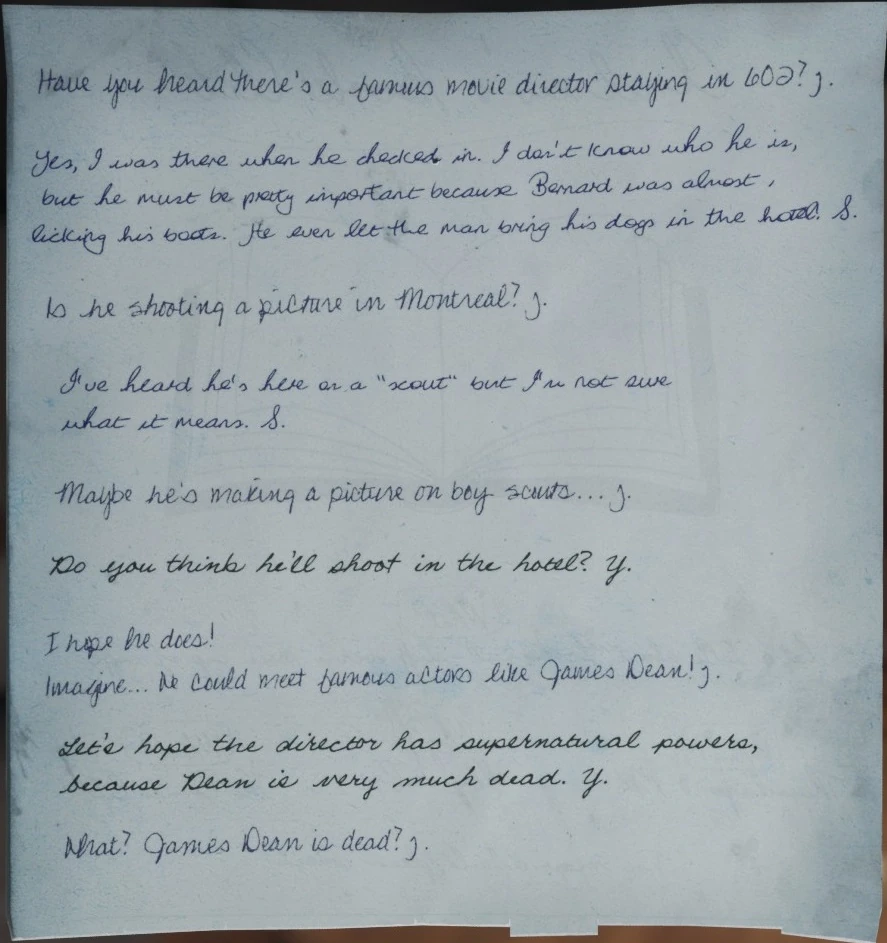 Have you heard there's a famous movie director staying in 602? J.
Yes, I was there when he checked in. I don't know who he is,
but he must be pretty important because Bernard was almost
licking his boots. He even let the man bring his dogs in the hotel. S.
Is he shooting a picture in Montreal? J.
I've heard he's here on a "scout" but I'm not sure
what it means. S.
Maybe he's making a picture on boy scouts... J.
Do you think he'll shoot in the hotel? Y.
I hope he does!
Imagine... We could meet famous actors like James Dean! J.
Let's hope the director has supernatural powers,
because Dean is very much dead. Y.
What? James Dean is dead? J.